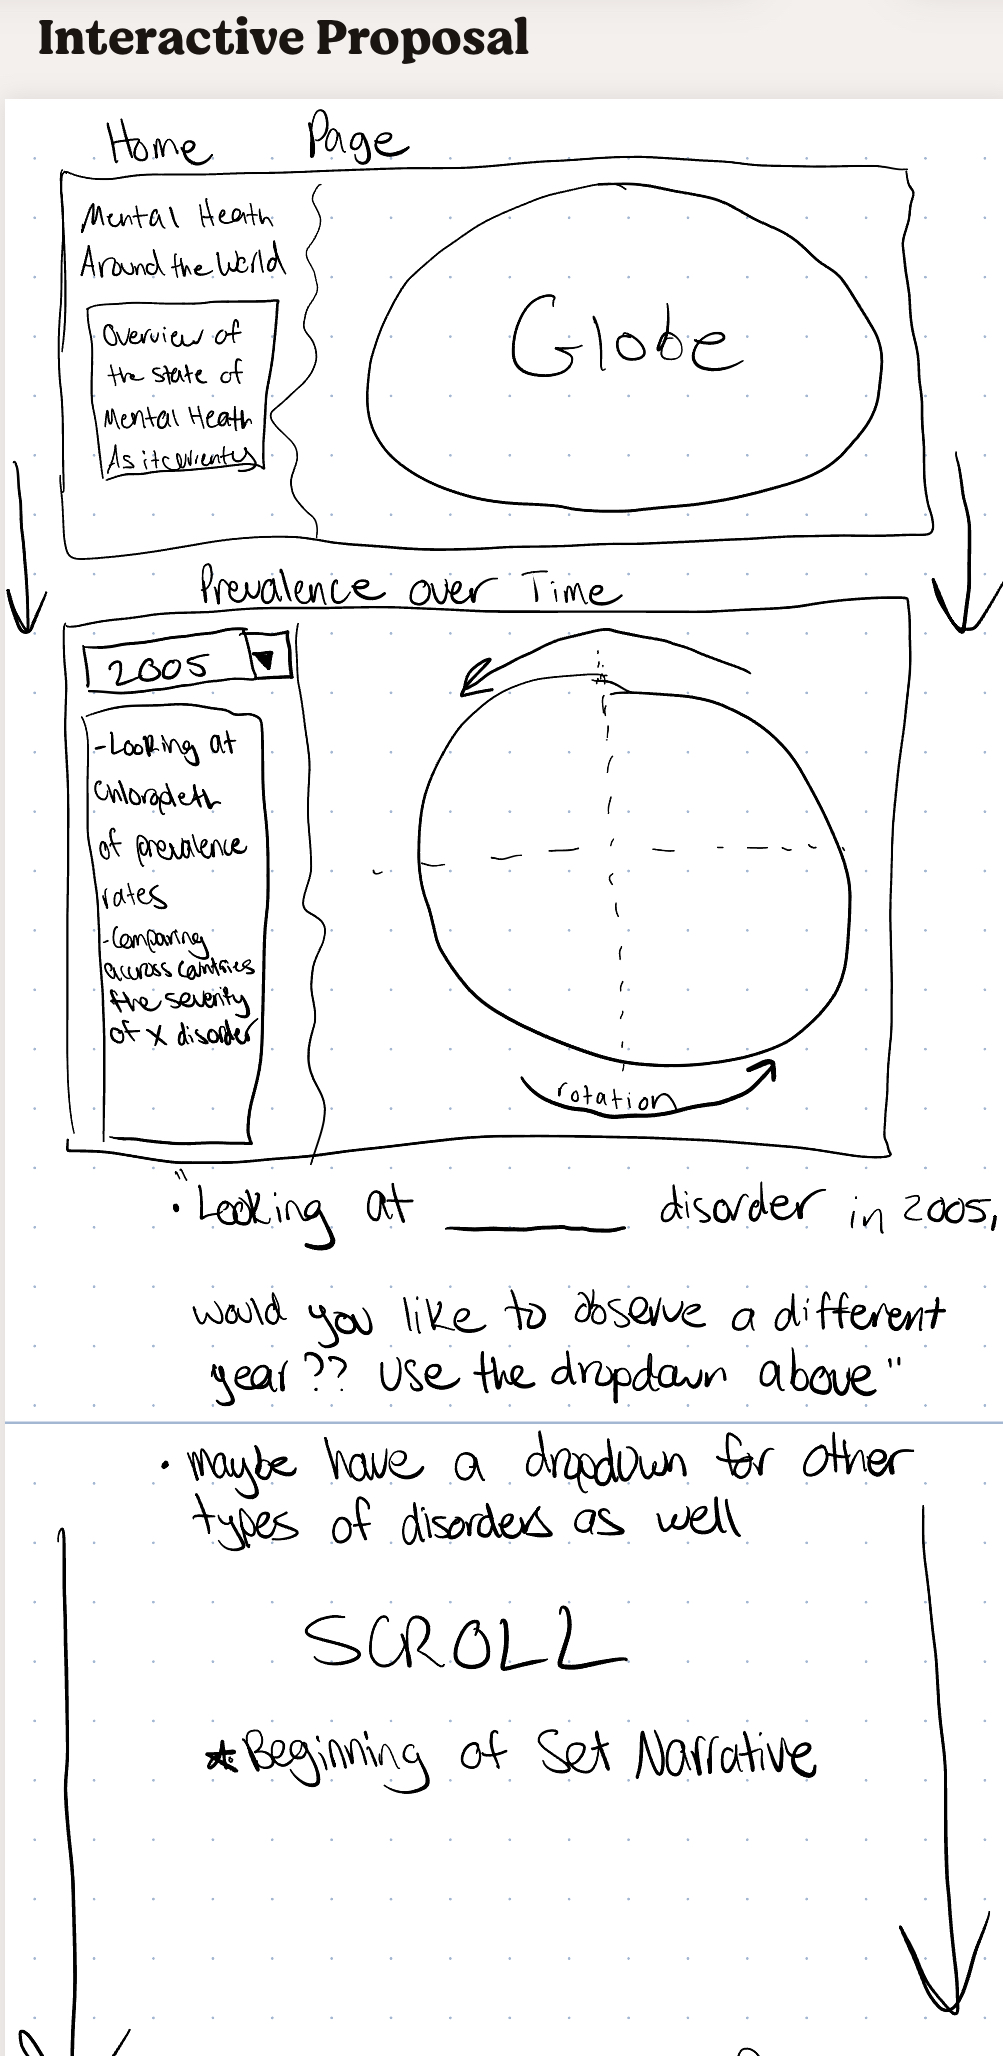 Interactive Proposal
Home Page
Mental Heath
Around the World
Globe
Overview of
the state of
Mental Heath
As it
Prevalence over Time
2005
-Looking at
Chloropleth
of prevalence
rates
-Comparing
across countries
the severity
of X disorder
rotation
• "Looking at ______ disorder in 2005,
would you like to observe a different
year?? Use the dropdown above"
• maybe have a dropdown for other
types of disorders as well
SCROLL
*Beginning of Set Narrative